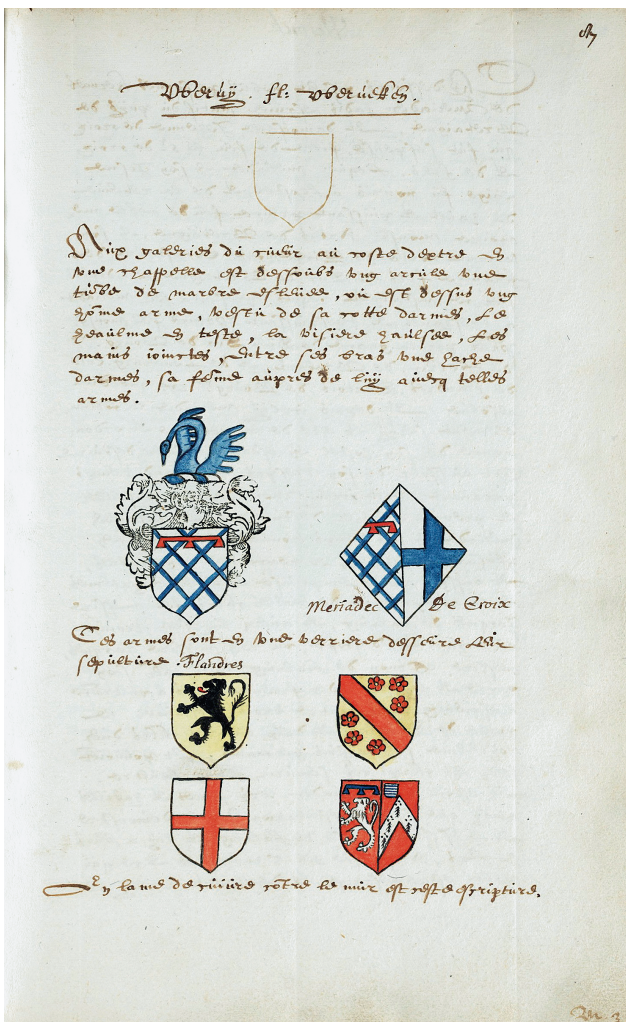 87
Vberuy . fl: vberueken.
Aux galeries du cueur au coste dextre en
vne chappelle est dessoubs vng arcure vne
tũbe de marbre esleuee, ou est dessus vng
hõme arme, vestu de sa cotte darmes, Le
heaulme en teste, la visiere haulsee, Les
mains ioinctes, Entre ses bras vne hache
darmes, sa feme aupres de luy auecq telles
armes.
Meriadec De Croix
Ces armes sont en vne verriere desseure Leur
sepulture . Flandres
En lame de cuiure cõtre le mur est ceste escripture.